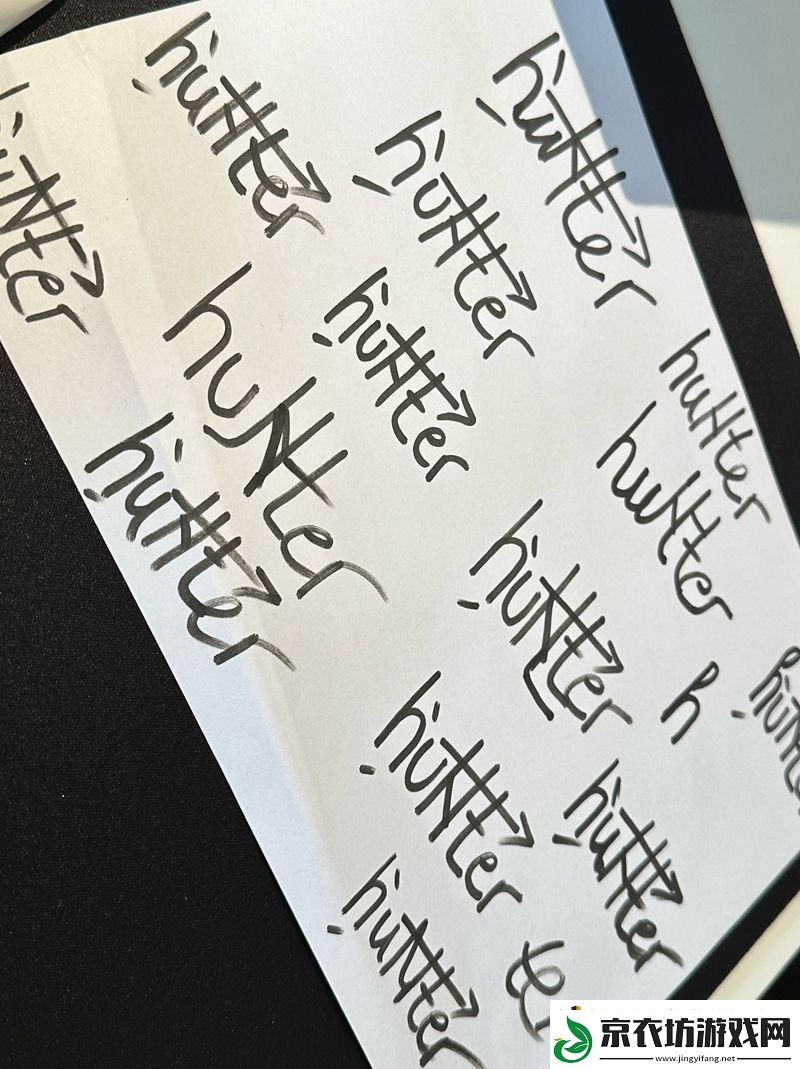 hunter
hunter
hunter
hunter
hunter
hunter
hunter
hunter
hunter
hunter
h
hunter
hunter
hunter
hunter
te
京农坊游戏网
www.jingyifang.net